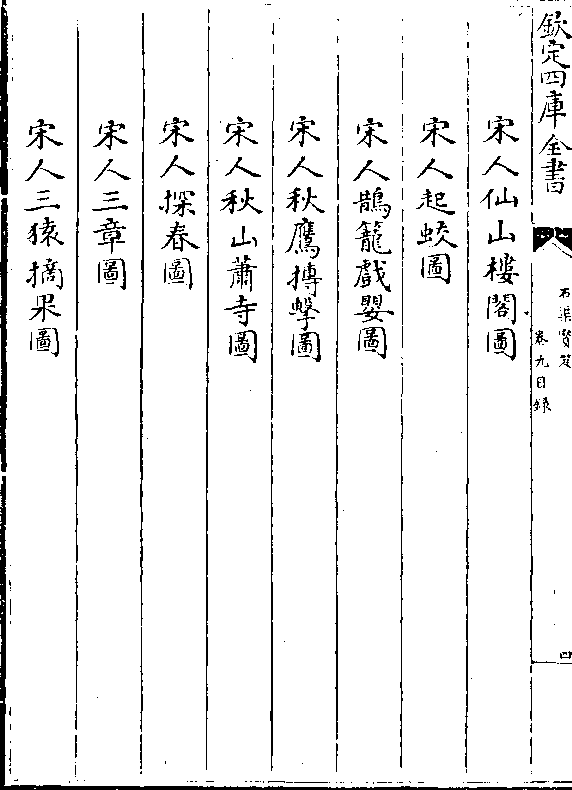 欽定四庫全書
石渠寶笈
卷九目録
四
宋人仙山樓閣圖
宋人起蛟圖
宋人鵲籠戲嬰圖
宋人秋鷹搏擊圖
宋人秋山蕭寺圖
宋人探春圖
宋人三章圖
宋人三猿摘果圖